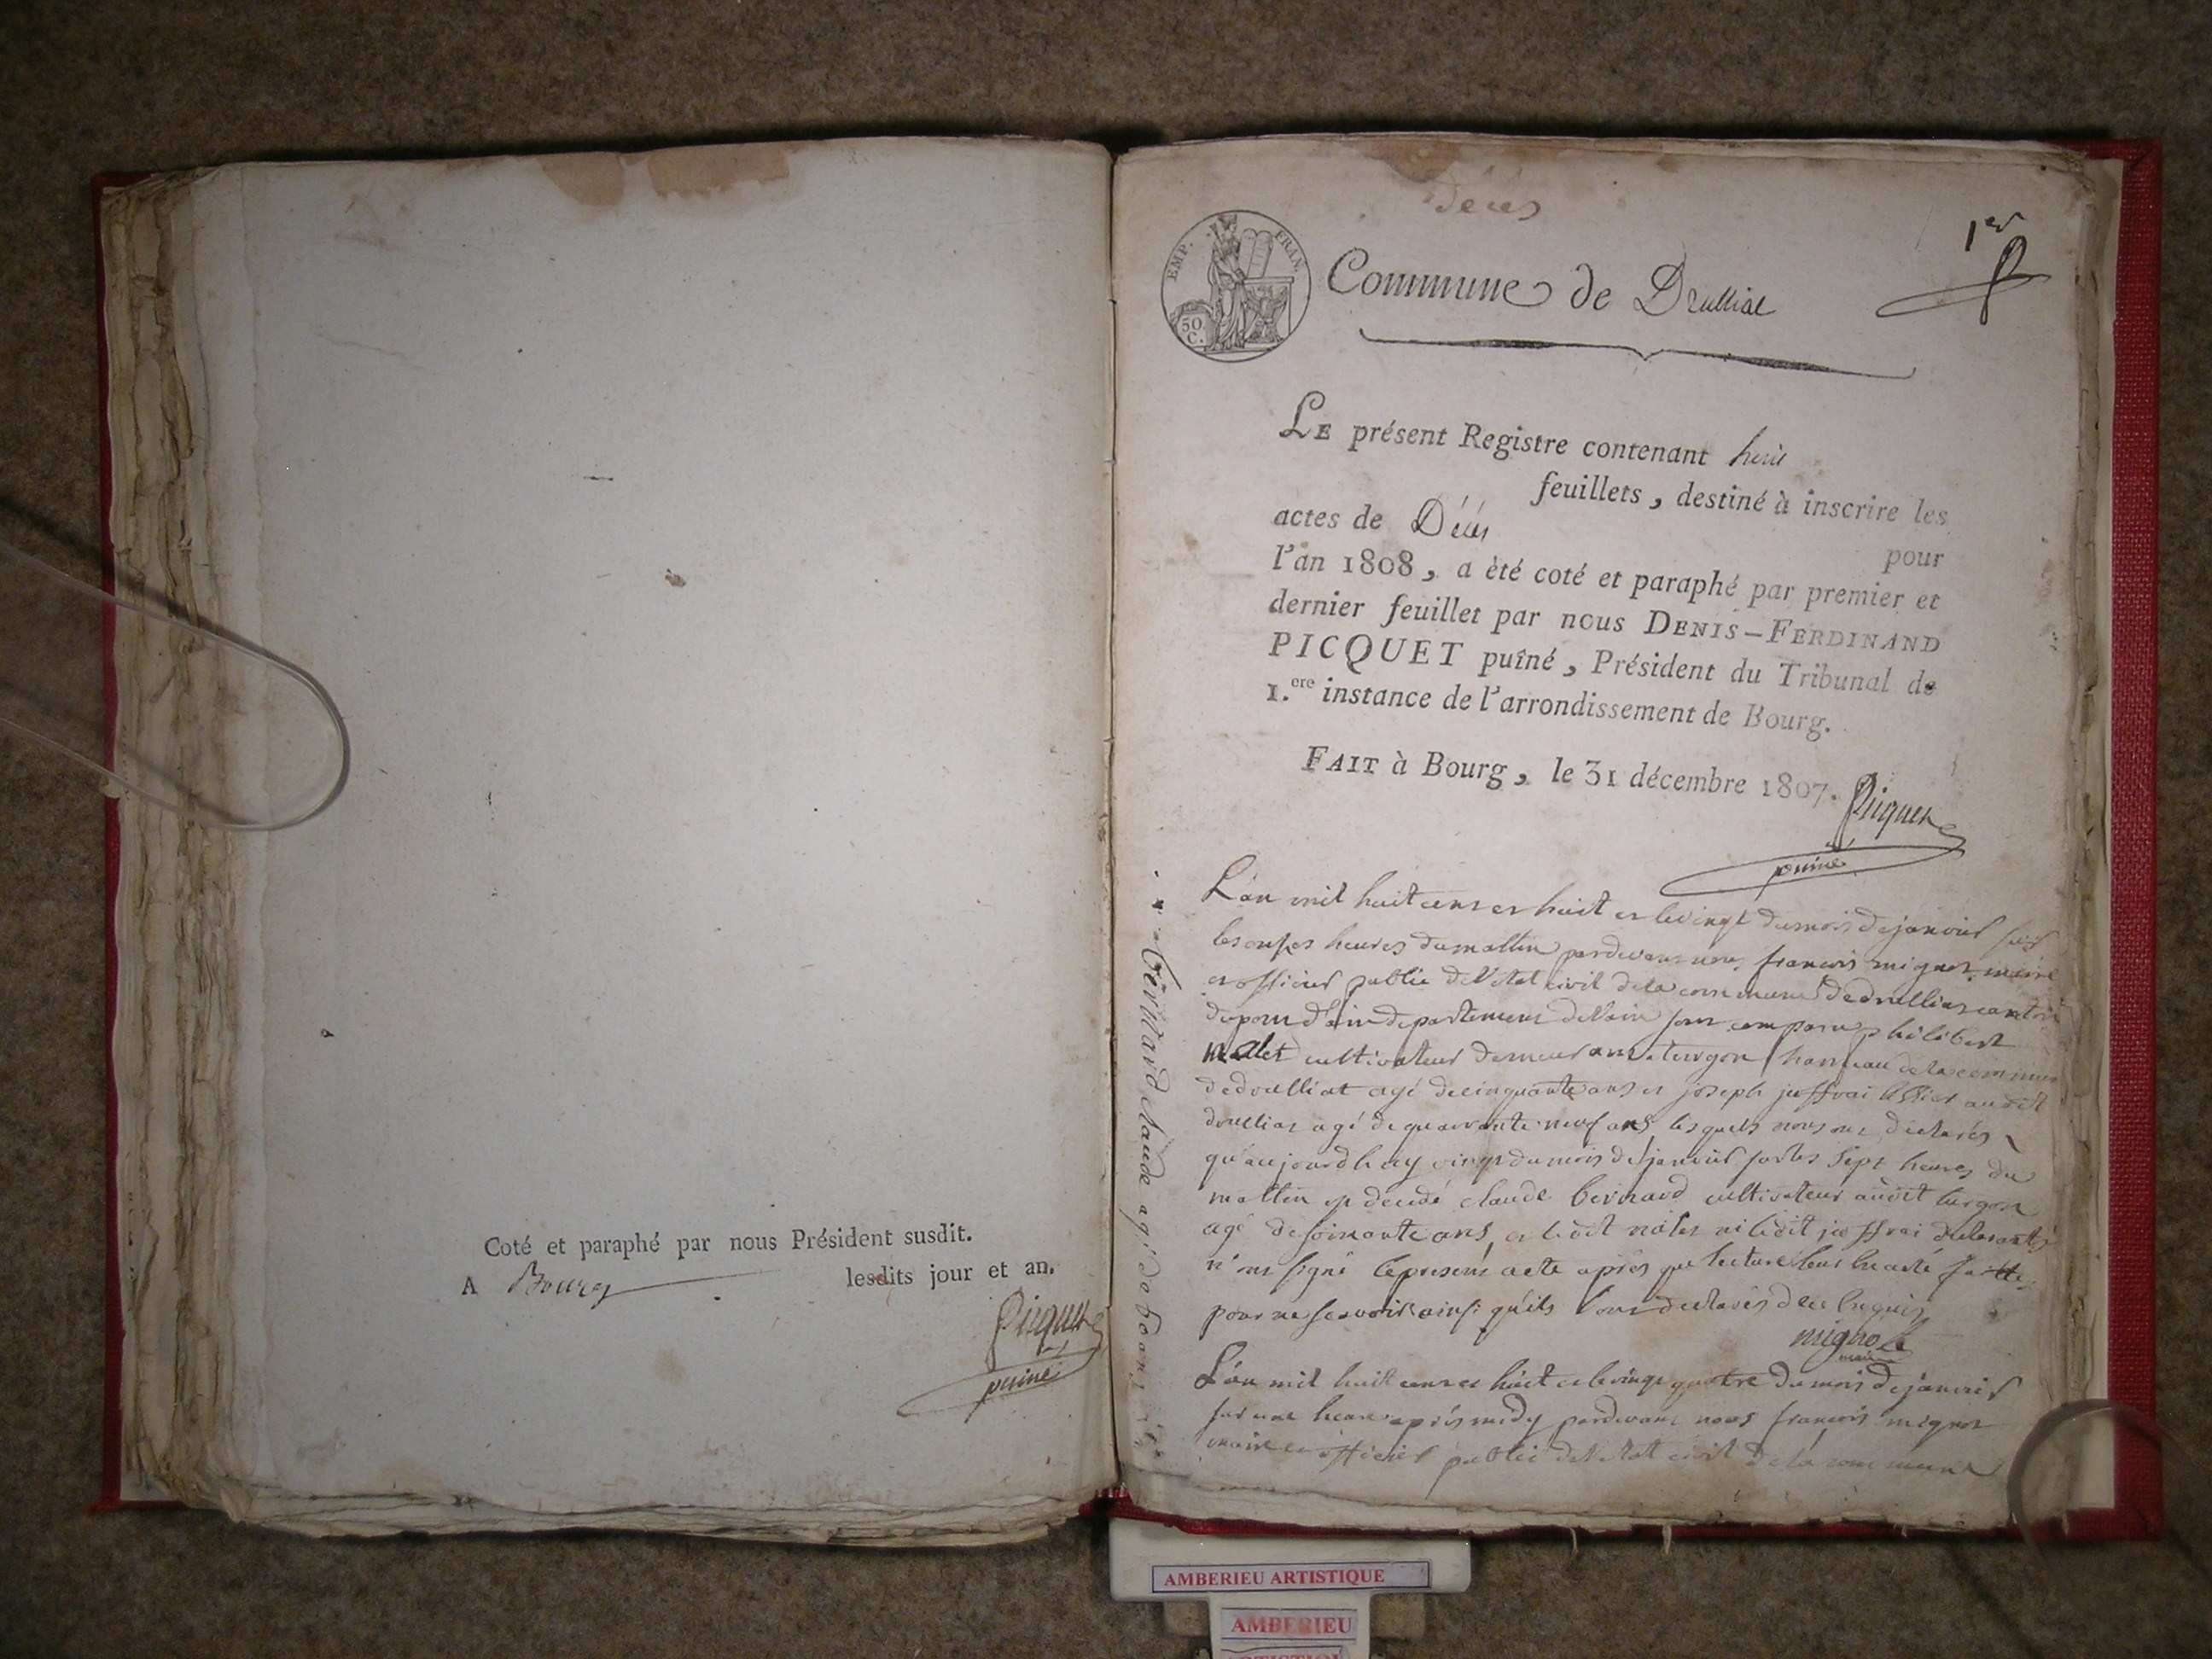 Coté et paraphé par nous Président susdit.
A Bourg lesdits jour et an.
Picquet
puiné
décès
1er
EMP. FRAN.
50
C.
Commune de Druilliat
LE présent Registre contenant huit
feuillets, destiné à inscrire les
actes de Décès
pour
l'an 1808, a èté coté et paraphé par premier et
dernier feuillet par nous DENIS-FERDINAND
PICQUET puîné, Président du Tribunal de
1.ere instance de l'arrondissement de Bourg.
FAIT à Bourg, le 31 décembre 1807.
Picquet
puiné
bernard claude agé de 60 ans
L'an mil huit cens et huit et le vingt du mois de janvier sur
les onses heures du mattin pardevant nous françois mignot maire
et officier public de l'etat civil de la commune de druilliat canton
de pont d'ain departement de l'ain sont comparus philibert
malet cultivateur demeurant a turgon hameau de la commune
de druilliat agé de cinquante ans et joseph joffrai audit
druilliat agé de quarante neuf ans lesquels nous ont declarés
qu'aujourdhuy vingt du mois de janvier sur les sept heures du
mattin est décédé claude bernard cultivateur audit turgon
agé de soixante ans et ledit malet ni ledit joffrai declarants
n'ont signé le present acte après que lecture leur en a été faitte
pour ne scavoir ainsi qu'ils l'ont declarés de ce enquis
mignot
maire
L'an mil huit cens et huit et le vingt quatre du mois de janvier
sur une heure après midy pardevant nous françois mignot
maire et officier public de l'etat civil de la commune
AMBERIEU ARTISTIQUE
AMBERIEU
ARTISTIQUE